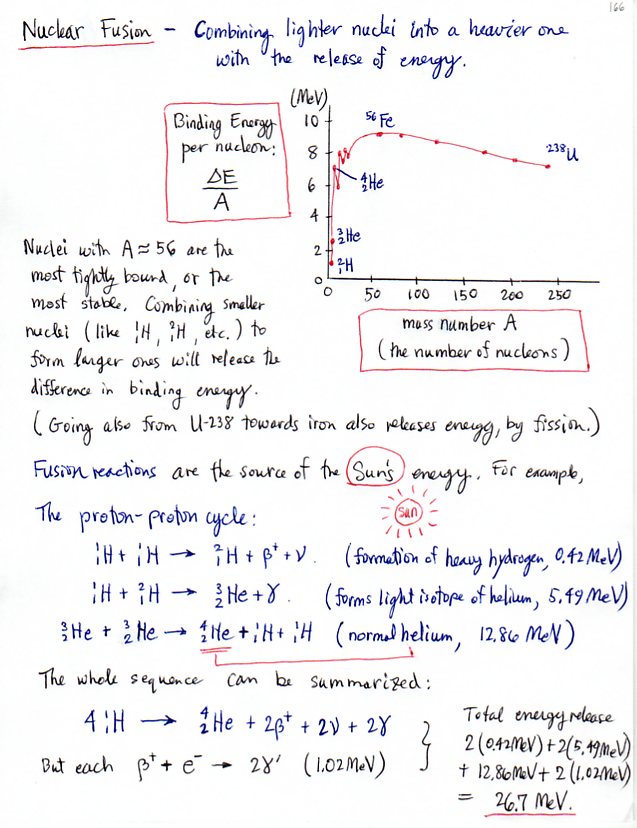 166
Nuclear Fusion – Combining lighter nuclei into a heavier one
with the release of energy.
Binding Energy
per nucleon:
ΔE
A
(MeV)
10
8
6
4
2
0
⁵⁶Fe
²³⁸U
⁴₂He
³₂He
²₁H
0 50 100 150 200 250
mass number A
(the number of nucleons)
Nuclei with A ≈ 56 are the
most tightly bound, or the
most stable. Combining smaller
nuclei (like ¹₁H, ²₁H, etc.) to
form larger ones will release the
difference in binding energy.
(Going also from U-238 towards iron also releases energy, by fission.)
Fusion reactions are the source of the Sun's energy. For example,
The proton-proton cycle:
sun
¹₁H + ¹₁H → ²₁H + β⁺ + ν. (formation of heavy hydrogen, 0.42 MeV)
¹₁H + ²₁H → ³₂He + γ. (forms light isotope of helium, 5.49 MeV)
³₂He + ³₂He → ⁴₂He + ¹₁H + ¹₁H (normal helium, 12.86 MeV)
The whole sequence can be summarized:
4 ¹₁H → ⁴₂He + 2β⁺ + 2ν + 2γ
But each β⁺ + e⁻ → 2γ' (1.02 MeV)
Total energy release
2(0.42 MeV) + 2(5.49 MeV)
+ 12.86 MeV + 2(1.02 MeV)
= 26.7 MeV.